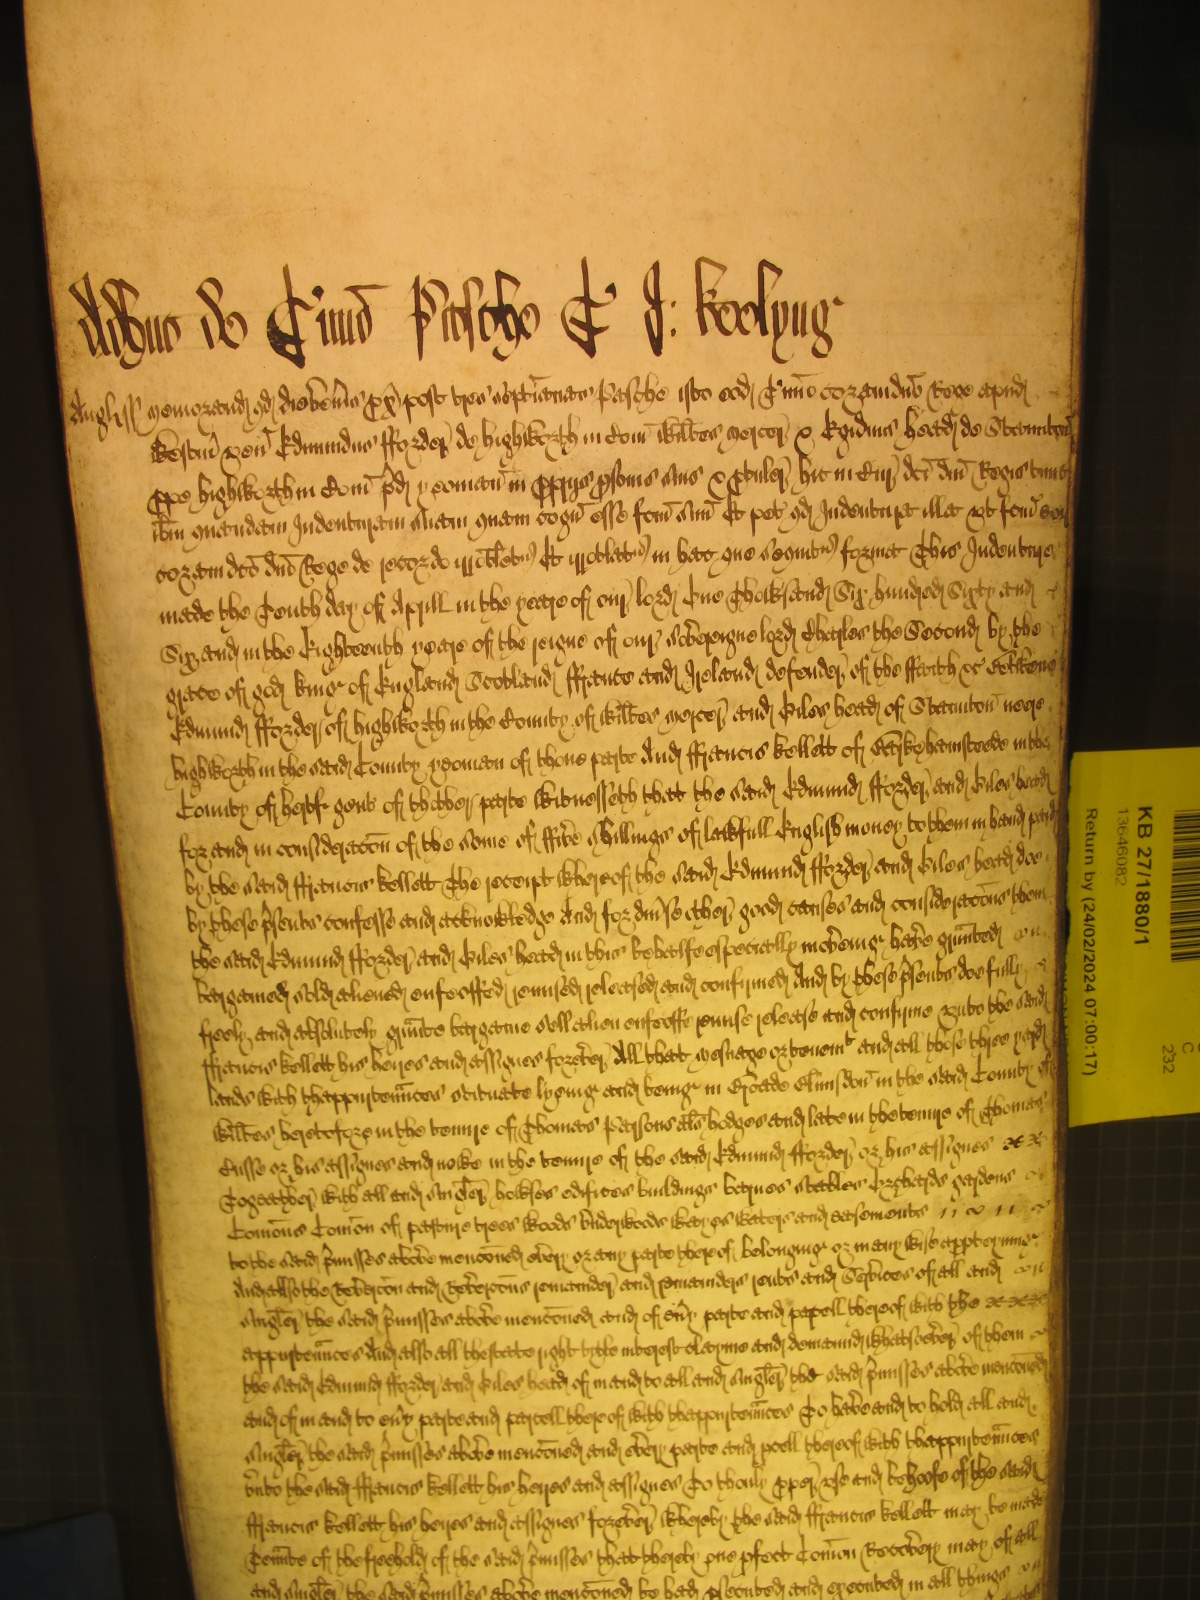 Adhuc de Termino Pasche T J: Keelyng
Angliss Memorand qd die ven'is px' post tres septimanas Pasche isto eod Termino coram dno Rege apud
Westm ven' Edmundus fforder de Highworth in Com Wiltes mercer & Egidius Heath de Staunton
prpe Highworth in Com pred yeoman in propriis psonis suis & protuler hic in Cur dci dni Regis tunc
ibm quandam Indenturam suam quam cogn esse fcm suu Et pet qd Indentura illa ut fcm
coram dco dno Rege de recordo irrotletur Et irrotlatur in hac que sequitur forma This Indenture
made the Tenth day of Aprill in the yeare of our lord One Thowsand Six hundred Sixty and
Six and in the Eighteenth yeare of the reigne of our Sovereigne lord Charles the Second by the
grace of god king of England Scotland ffrance and Ireland defender of the ffaith &c Betweene
Edmund fforder of Highworth in the County of Wiltes mercer and Giles Heath of Staunton neere
Highworth in the said County yeoman of thone parte And ffrancis Kellett of Barkehamsteede in the
County of Hertf gent of thother parte Witnesseth that the said Edmund fforder and Giles Heath
for and in consideracon of the some of ffive Shillings of lawfull English money to them in hand paid
by the said ffrancis Kellett The receipt whereof the said Edmund fforder and Giles Heath doe
by these psents confesse and acknowledge And for divse other good causes and consideracons them
the said Edmund fforder and Giles Heath in this behalfe especially moveing have graunted
bargained sold aliened enfeoffed remised released and confirmed And by these psents doe fully
freely and absolutely graunte bargaine sell alien enfeoffe remise release and confirme unto the said
ffrancis Kellett his heires and assignes forever All that mesuage or tenemt and all those three yard
lands with thappurtennces scituate lyeing and being in Broade Blunsdon in the said County of
Wiltes heretofore in the tenure of Thomas Parsons als Hodges and late in the tenure of Thomas
Cusse or his assignes and nowe in the tenure of the said Edmund fforder or his assignes
Togeather with all and singler howses edifices buildings barnes stables Orchards gardens
Comons Comon of pasture trees woods underwoods wayes waters and easements
to the said pmisses above menconed every or any parte thereof belonging or in any wise apperteining
And also the Revercon and Revercons remainder and remainders rents and Services of all and
singler the said pmisses above menconed and of every parte and parcell thereof with the
appurtennces And also all thestate right title interest clayme and demaund whatsoever of them
the said Edmund fforder and Giles Heath of in and to all and singler the said pmisses above menconed
and of in and to every parte and parcell thereof with thappurtennces To have and to hold all and
singler the said pmisses above menconed and every parte and pcell thereof with thappurtennces
unto the said ffrancis Kellett his heires and assignes To thonly pper use and behoofe of the said
ffrancis Kellett his heires and assignes forever whereby the said ffrancis Kellett may be made
Tennte of the freehold of the said pmisses that thereby one pfect Comon Recovery may of all
and singler the said pmisses above menconed be had psecuted and executed in all things
KB 27/1880/1
13646082
Return by (24/02/2024 07:00:17)
C
232